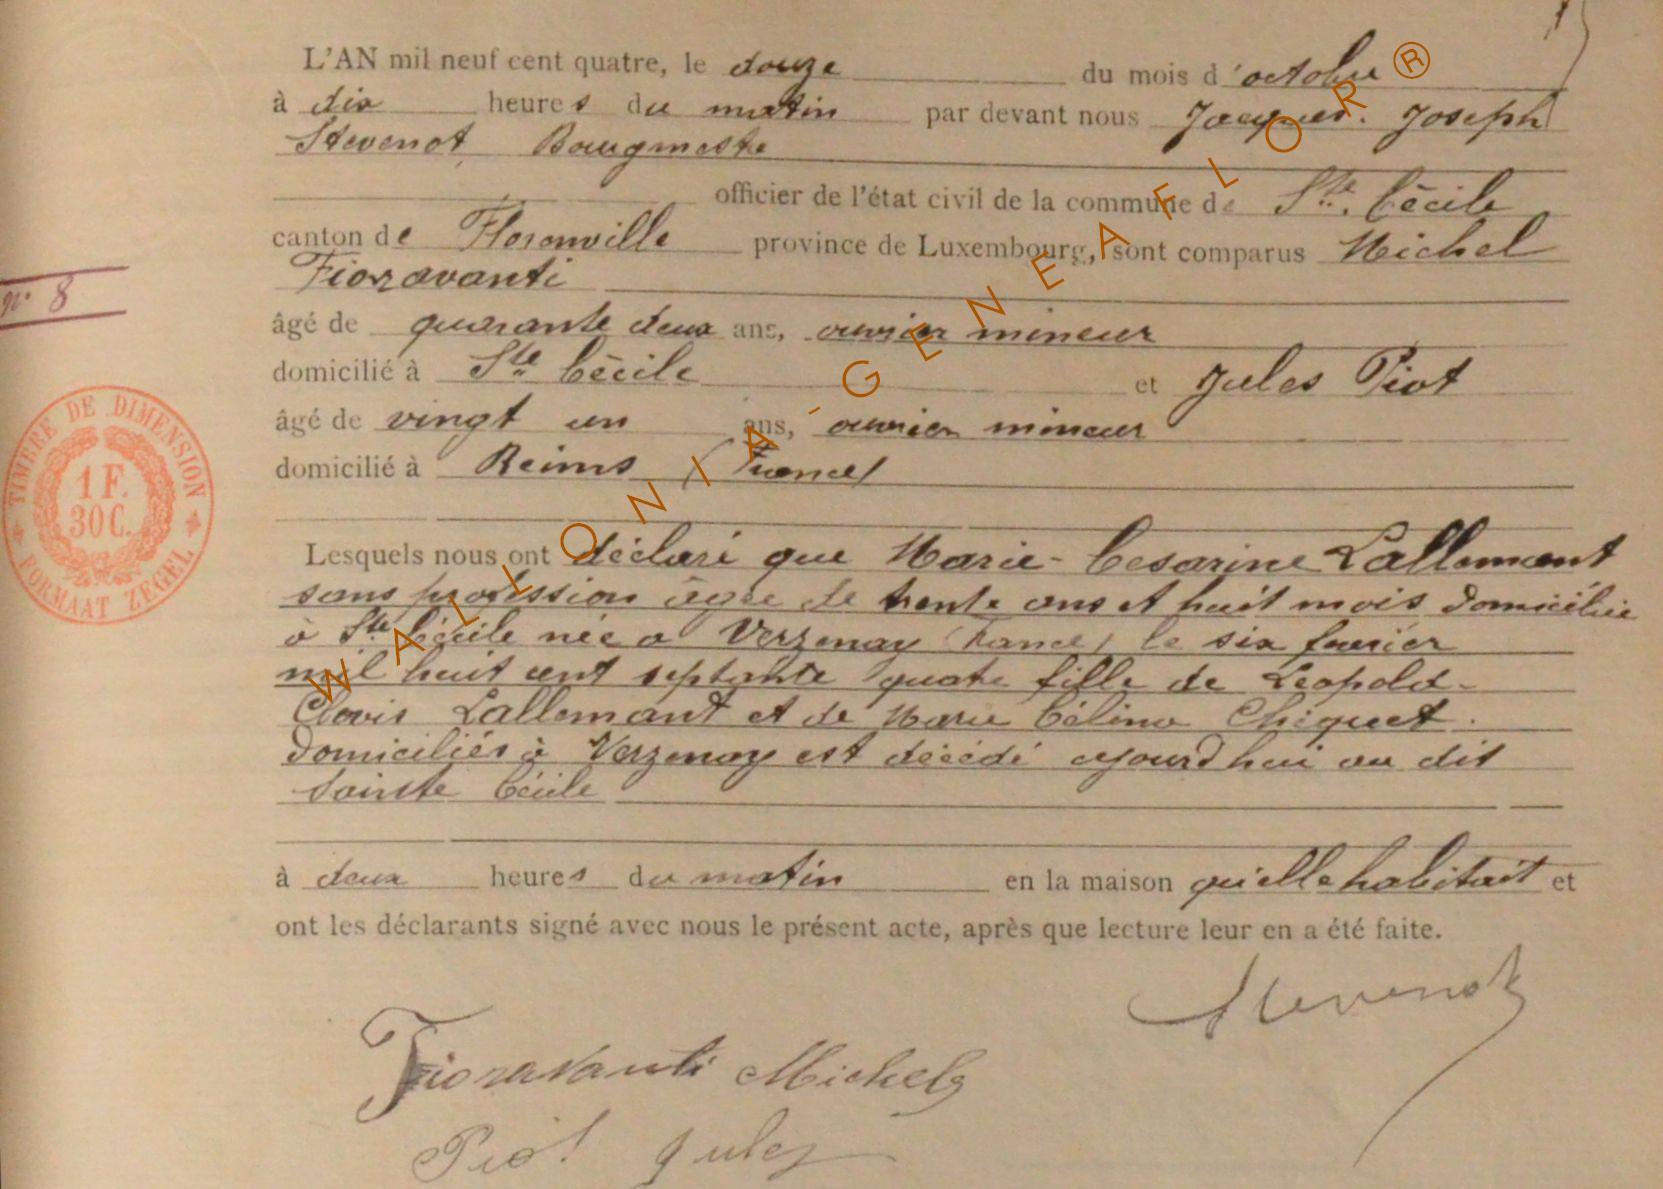 L'AN mil neuf cent quatre, le douze du mois d'octobre
à dix heures du matin par devant nous Jacques. Joseph
Stevenot, Bourgmestre
officier de l'état civil de la commune de Ste. Cécile
canton de Florenville province de Luxembourg, sont comparus Michel
Fioravanti
n° 8
âgé de quarante deux ans, ouvrier mineur
domicilié à Ste Cécile et Jules Piot
âgé de vingt un ans, ouvrier mineur
domicilié à Reims (France)
TIMBRE DE DIMENSION
1 F.
30 C.
FORMAAT ZEGEL
Lesquels nous ont déclaré que Marie-Cesarine Lallemant
sans profession âgée de trente ans et huit mois domiciliée
à Ste Cécile née à Verzenay (France) le six février
mil huit cent septante quatre fille de Léopold-
Clovis Lallemant et de Marie Célina Chiquet.
domiciliés à Verzenay est décédé ajourd'hui au dit
Sainte Cécile
à deux heures du matin en la maison qu'elle habitait et
ont les déclarants signé avec nous le présent acte, après que lecture leur en a été faite.
Stevenot
Fioravanti Michel
Piot Jules
WALLONIA-GENEAFLOR®